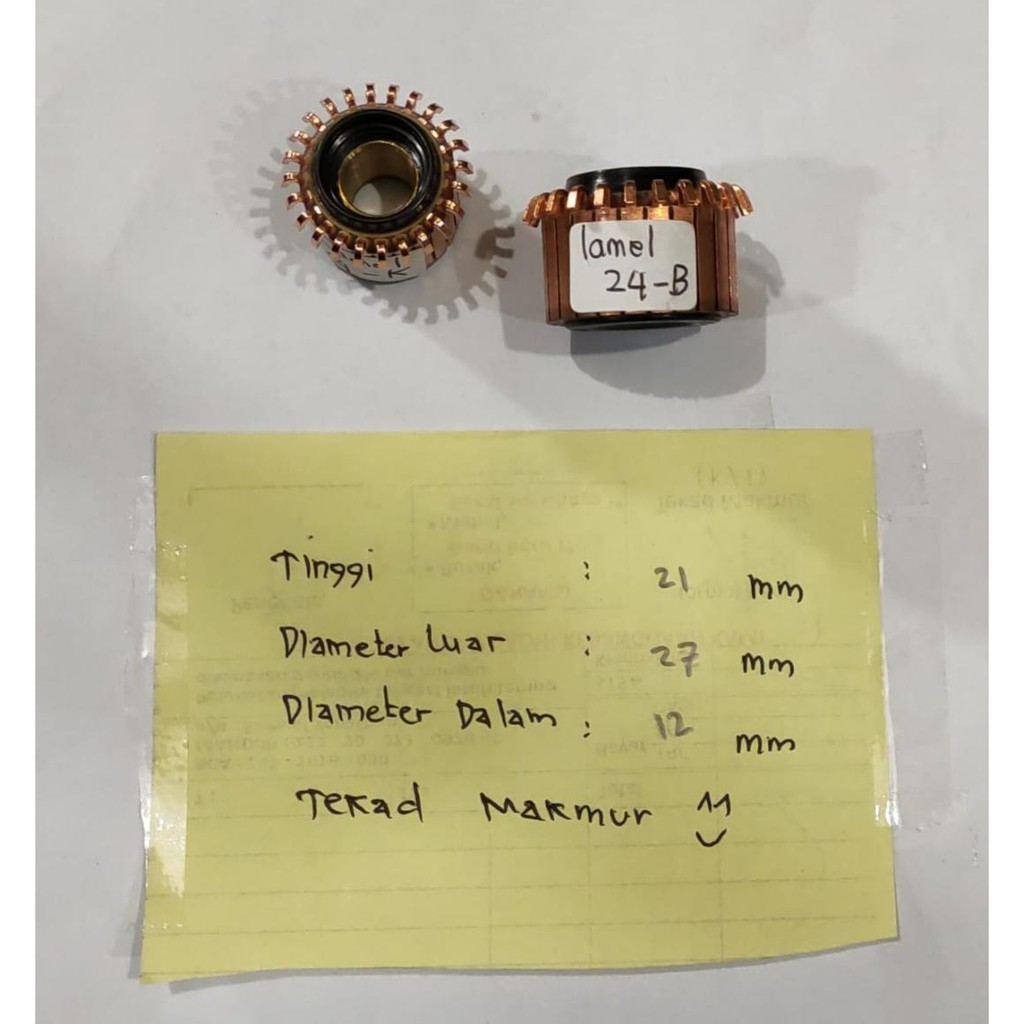 lamel
24-B
Tinggi : 21 mm
Diameter Luar : 27 mm
Diameter Dalam : 12 mm
Tekad Makmur